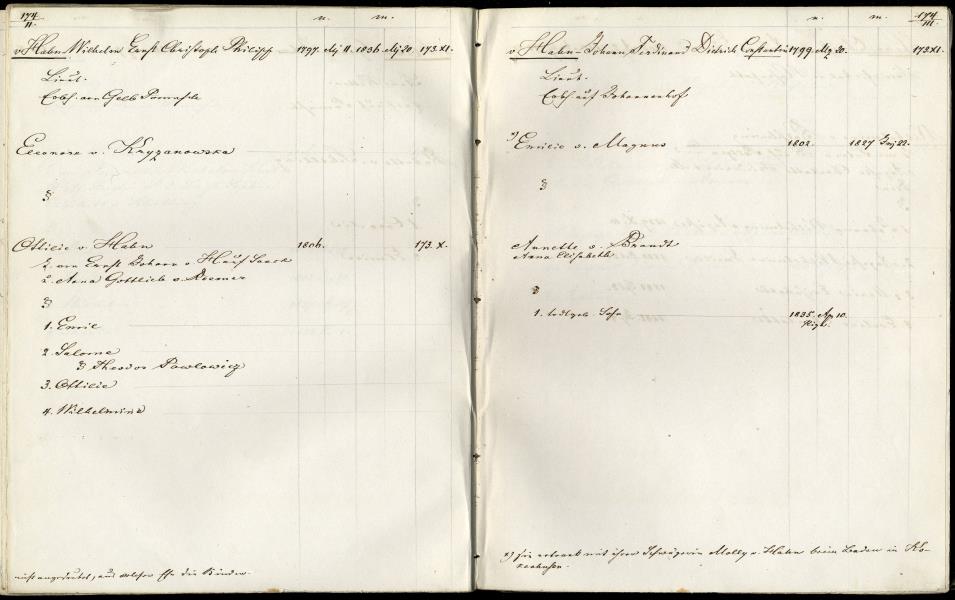 174
II.
n.
m.
v. Hahn Wilhelm Ernst Christoph Philipp 1797. Mj 11. 1836. Mj 20. 173. XI.
Lieut.
Erbh. von Gelb Pomusch
Eleonore v. Kryzanowska
Ottilie v. Hahn 1806. 173. X.
1. von Ernst Johann v. H auf
2. Anna Gottlieb v. Roemer
1. Emil
2. Salome
Theodor Pawlowicz
3. Ottilie
4. Wilhelmine
nicht angedeutet, aus welcher Ehe die Kinder.
174
III.
n.
m.
v. Hahn Johann Ferdinand Dietrich Constantin 1799. 20. 173. XI.
Lieut.
Erbh. auf Johannenhof
*) Emilie v. Magnus 1802. 1827 22.
Annette v. Brandt
Anna Elisabeth
1. todtgeb. Sohn 1835. Ap 10.
Riga.
*) Sie ertrank mit ihrer Schwägerin Molly v. Hahn beim Baden in Ko-
kenhusen.